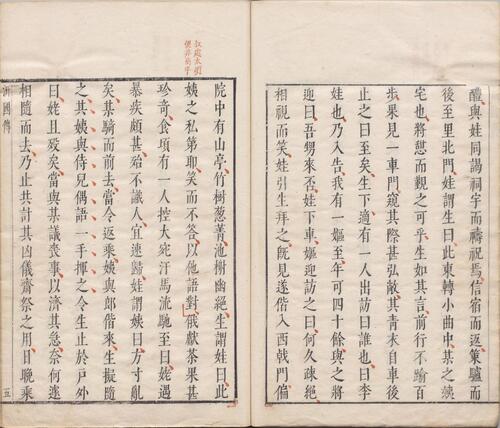 醴與娃同謁祠宇而禱祝焉信宿而返策驢而
後至里北門娃謂生曰此東轉小曲中某之姨
宅也將憩而觀之可乎生如其言前行不踰百
步果見一車門窺其際甚弘敞其青衣自車後
止之曰至矣生下適有一人出訪曰誰也曰李
娃也乃入告我有一嫗至年可四十餘與之將
迎曰吾甥來否娃下車嫗迎訪之曰何久疎絕
相視而笑娃引生拜之旣見遂偕入西戟門偏
叙處太煩
便非高手
院中有山亭竹樹葱蒨池榭幽絕生謂娃曰此
姨之私第耶笑而不答以他語對俄獻茶果甚
珍奇食頃有一人控大宛汗馬流馳至曰姥遇
暴疾頗甚殆不識人宜速歸娃謂姨曰方寸亂
矣某騎而前去當令返乘姨與郎偕來生擬隨
之其姨與侍兒偶語一手揮之令生止於戶外
曰姥且殁矣當與某議喪事以濟其急奈何遽
相隨而去乃止共計其凶儀齋祭之用日晚乘
汧國傳
五